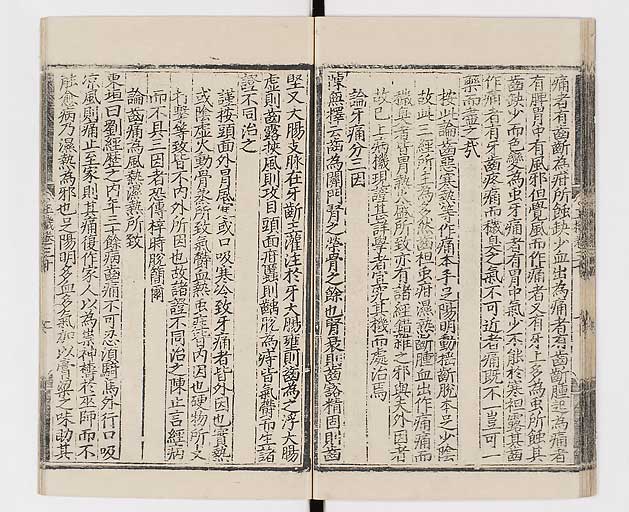 痛者有齒齗為疳所蝕缺少血出為痛者有齒齗腫起為痛者
有脾胃中有風邪但覺風而作痛者又有牙上多為虫所蝕其
齒缺少而色變為虫牙痛者有胃中氣少不能於寒袒露其齒
作痛者有牙齒疼痛而穢臭之氣不可近者痛既不一豈可一
藥而盡之哉
按此論齒惡寒熱等作痛本手足陽明動搖齗脫本足少陰
故此三經所主為多然齒袒虫疳濕熱齗腫血出作痛痛而
穢臭者皆胃熱火盛所致亦有諸經錯雜之邪與夫外因者
故已上病機現證甚詳學者當究其機而處治焉
論牙痛分三因
陳無擇云齒為關門腎之榮骨之餘也腎衰則齒豁精固則齒
堅又大腸支脉在牙齗主灌注於牙大腸壅則齒為之浮大腸
虛則齒露挾風則攻目頭面疳䘌則齲脫為痔皆氣鬱而生諸
證不同治之
謹按頭面外冒風寒或口吸寒冷致牙痛者皆外因也胃熱
或陰虛火動骨蒸所致氣鬱血熱虫蛀皆內因也硬物所支
打擊等致皆不內外所因也故諸證不同治之陳止言經病
而不具三因者恐傳梓時脫簡爾
論齒痛為濕熱所致
東垣曰劉經歷之內年三十餘病齒痛不可忍須騎馬外行口吸
凉風則痛止至家則其痛復作家人以為祟神禱於巫師而不
能愈病乃濕熱為邪也足陽明多血多氣加以膏粱之味助其